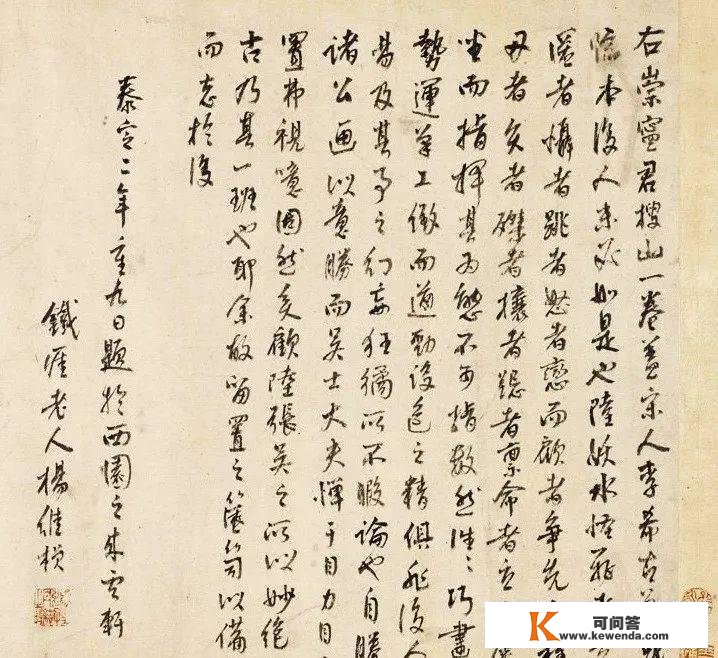 右崇寧君搜山一卷蓋宋人李希古
臨本後人未必如是也陸妖水怪
者懾者跳者怒者戀而顧者爭先
者磔者攘者聽者稟命者立
坐而指揮其為態不可指数然往〻巧畫
勢運筆工緻而遒勁設色之精俱非後人
易及其事之幻妄狂獝以不暇論也自勝
諸公画以意勝而吳士大夫憚于目力目
置弗視噫固然矣顧陸張吳之所以妙絶
古乃其一班也耶余故留置之篋笥以備
而志於後
泰定二年重九日題於西園之朱雲軒
鐵崖老人楊維楨
可问答
www.kewenda.com